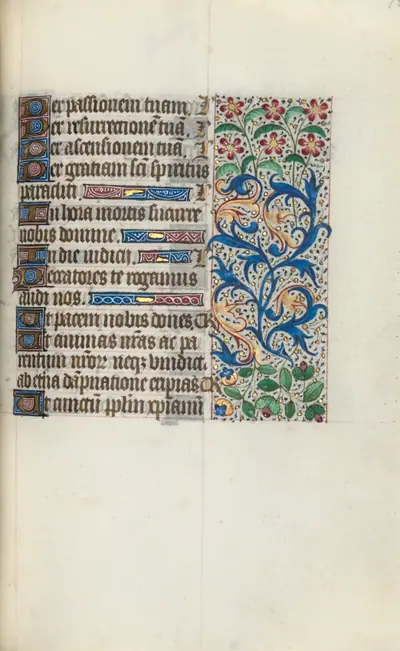 Per passionem tuam. I
Per resurrectionē tuā. I
Per ascensionem tuā. I
Per gratiam scī spiritus
paracliti. I
In hora mortis succurre
nobis domine.
In die iudicij. I
Peccatores te rogamus
audi nos.
Ut pacem nobis dones. te R
Ut animas nr̄as ac pa
rentum nr̄or neq vindict
ab etña dāpnatione eripias. R
Ut cunctū pplm xp̄ianū